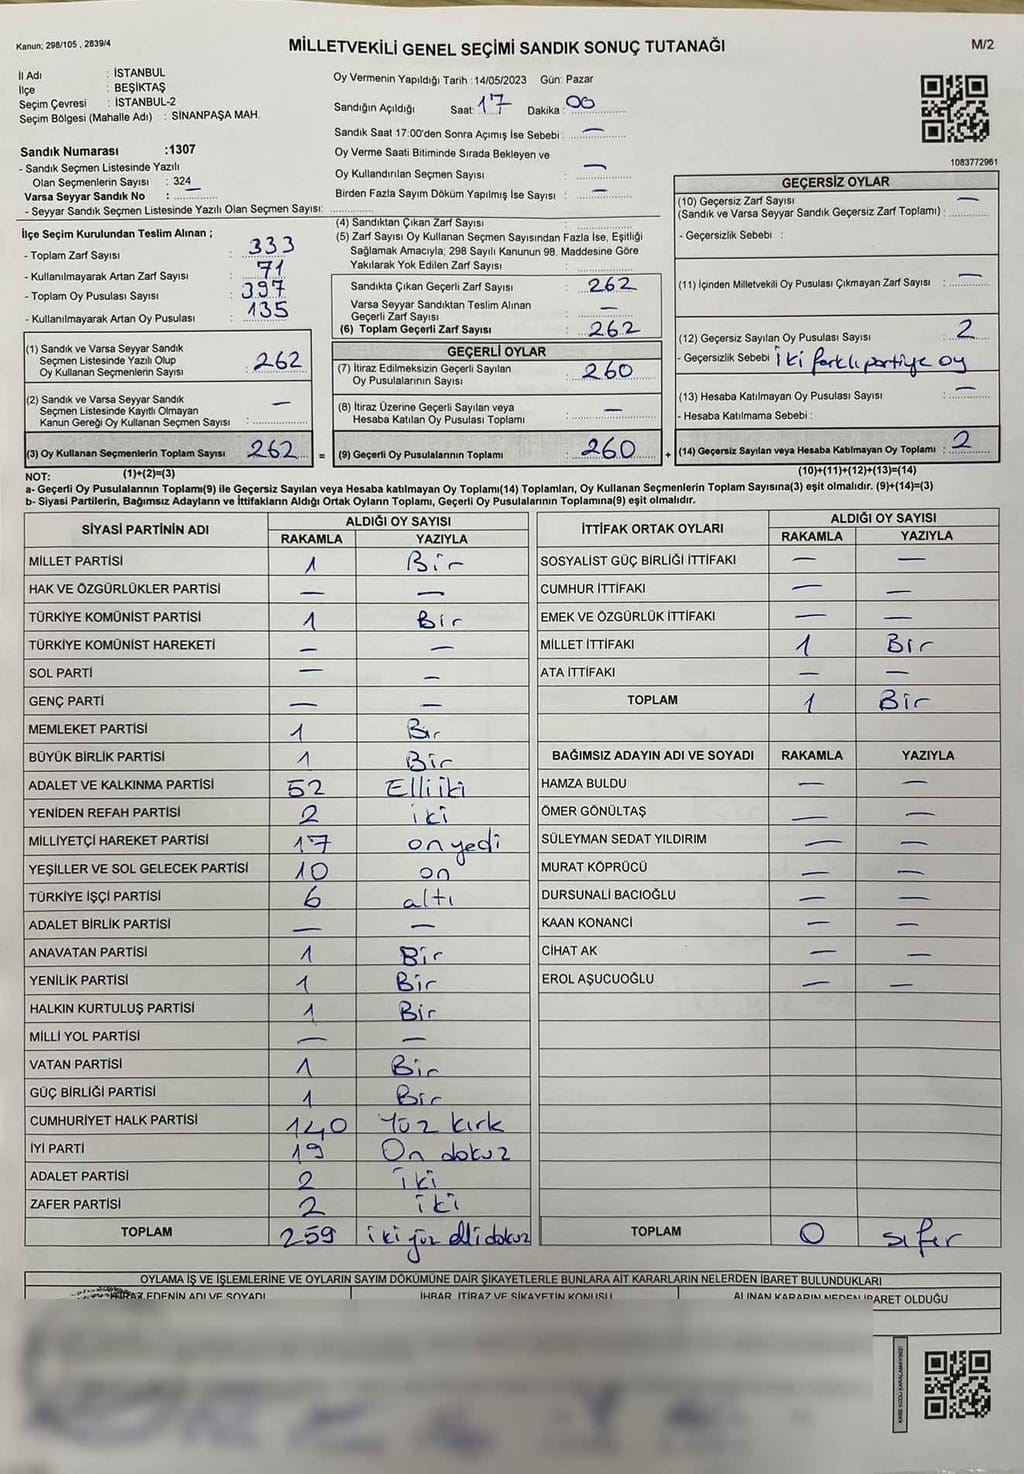 Kanun; 298/105 , 2839/4
MİLLETVEKİLİ GENEL SEÇİMİ SANDIK SONUÇ TUTANAĞI
M/2
İl Adı : İSTANBUL
İlçe : BEŞİKTAŞ
Seçim Çevresi : İSTANBUL-2
Seçim Bölgesi (Mahalle Adı) : SİNANPAŞA MAH.
Sandık Numarası :1307
- Sandık Seçmen Listesinde Yazılı
Olan Seçmenlerin Sayısı : 324
Varsa Seyyar Sandık No : —
- Seyyar Sandık Seçmen Listesinde Yazılı Olan Seçmen Sayısı:
Oy Vermenin Yapıldığı Tarih :14/05/2023 Gün: Pazar
Sandığın Açıldığı Saat: 17 Dakika : 00
Sandık Saat 17:00'den Sonra Açımış İse Sebebi : —
Oy Verme Saati Bitiminde Sırada Bekleyen ve
Oy Kullandırılan Seçmen Sayısı : —
Birden Fazla Sayım Döküm Yapılmış İse Sayısı : —
1083772961
İlçe Seçim Kurulundan Teslim Alınan ;
- Toplam Zarf Sayısı : 333
- Kullanılmayarak Artan Zarf Sayısı : 71
- Toplam Oy Pusulası Sayısı : 397
- Kullanılmayarak Artan Oy Pusulası : 135
(1) Sandık ve Varsa Seyyar Sandık
Seçmen Listesinde Yazılı Olup
Oy Kullanan Seçmenlerin Sayısı : 262
(2) Sandık ve Varsa Seyyar Sandık
Seçmen Listesinde Kayıtlı Olmayan
Kanun Gereği Oy Kullanan Seçmen Sayısı : —
(3) Oy Kullanan Seçmenlerin Toplam Sayısı : 262 =
(4) Sandıktan Çıkan Zarf Sayısı :
(5) Zarf Sayısı Oy Kullanan Seçmen Sayısından Fazla İse, Eşitliği
Sağlamak Amacıyla; 298 Sayılı Kanunun 98. Maddesine Göre
Yakılarak Yok Edilen Zarf Sayısı :
Sandıkta Çıkan Geçerli Zarf Sayısı : 262
Varsa Seyyar Sandıktan Teslim Alınan
Geçerli Zarf Sayısı : —
(6) Toplam Geçerli Zarf Sayısı : 262
GEÇERLİ OYLAR
(7) İtiraz Edilmeksizin Geçerli Sayılan
Oy Pusulalarının Sayısı : 260
(8) İtiraz Üzerine Geçerli Sayılan veya
Hesaba Katılan Oy Pusulası Toplamı : —
(9) Geçerli Oy Pusulalarının Toplamı : 260 +
GEÇERSİZ OYLAR
(10) Geçersiz Zarf Sayısı —
(Sandık ve Varsa Seyyar Sandık Geçersiz Zarf Toplamı) :
- Geçersizlik Sebebi :
(11) İçinden Milletvekili Oy Pusulası Çıkmayan Zarf Sayısı : —
(12) Geçersiz Sayılan Oy Pusulası Sayısı : 2
- Geçersizlik Sebebi : iki farklı partiye oy
(13) Hesaba Katılmayan Oy Pusulası Sayısı : —
- Hesaba Katılmama Sebebi :
(14) Geçersiz Sayılan veya Hesaba Katılmayan Oy Toplamı : 2
NOT: (1)+(2)=(3) (10)+(11)+(12)+(13)=(14)
a- Geçerli Oy Pusulalarının Toplamı(9) ile Geçersiz Sayılan veya Hesaba katılmayan Oy Toplamı(14) Toplamları, Oy Kullanan Seçmenlerin Toplam Sayısına(3) eşit olmalıdır. (9)+(14)=(3)
b- Siyasi Partilerin, Bağımsız Adayların ve İttifakların Aldığı Ortak Oyların Toplamı, Geçerli Oy Pusulalarının Toplamına(9) eşit olmalıdır.
SİYASİ PARTİNİN ADI ALDIĞI OY SAYISI
RAKAMLA YAZIYLA
MİLLET PARTİSİ 1 Bir
HAK VE ÖZGÜRLÜKLER PARTİSİ — —
TÜRKİYE KOMÜNİST PARTİSİ 1 Bir
TÜRKİYE KOMÜNİST HAREKETİ — —
SOL PARTİ — —
GENÇ PARTİ — —
MEMLEKET PARTİSİ 1 Bir
BÜYÜK BİRLİK PARTİSİ 1 Bir
ADALET VE KALKINMA PARTİSİ 52 Elli iki
YENİDEN REFAH PARTİSİ 2 iki
MİLLİYETÇİ HAREKET PARTİSİ 17 on yedi
YEŞİLLER VE SOL GELECEK PARTİSİ 10 on
TÜRKİYE İŞÇİ PARTİSİ 6 altı
ADALET BİRLİK PARTİSİ — —
ANAVATAN PARTİSİ 1 Bir
YENİLİK PARTİSİ 1 Bir
HALKIN KURTULUŞ PARTİSİ 1 Bir
MİLLİ YOL PARTİSİ — —
VATAN PARTİSİ 1 Bir
GÜÇ BİRLİĞİ PARTİSİ 1 Bir
CUMHURİYET HALK PARTİSİ 140 Yüz kırk
İYİ PARTİ 19 On dokuz
ADALET PARTİSİ 2 iki
ZAFER PARTİSİ 2 iki
TOPLAM 259 iki yüz elli dokuz
İTTİFAK ORTAK OYLARI ALDIĞI OY SAYISI
RAKAMLA YAZIYLA
SOSYALİST GÜÇ BİRLİĞİ İTTİFAKI — —
CUMHUR İTTİFAKI — —
EMEK VE ÖZGÜRLÜK İTTİFAKI — —
MİLLET İTTİFAKI 1 Bir
ATA İTTİFAKI — —
TOPLAM 1 Bir
BAĞIMSIZ ADAYIN ADI VE SOYADI RAKAMLA YAZIYLA
HAMZA BULDU — —
ÖMER GÖNÜLTAŞ — —
SÜLEYMAN SEDAT YILDIRIM — —
MURAT KÖPRÜCÜ — —
DURSUNALİ BACIOĞLU — —
KAAN KONANCİ — —
CİHAT AK — —
EROL AŞUCUOĞLU — —
TOPLAM 0 sıfır
OYLAMA İŞ VE İŞLEMLERİNE VE OYLARIN SAYIM DÖKÜMÜNE DAİR ŞİKAYETLERLE BUNLARA AİT KARARLARIN NELERDEN İBARET BULUNDUKLARI
EDENİN ADI VE SOYADI İHBAR, İTİRAZ VE ŞİKAYETİN KONUSU ALINAN KARARIN NEDEN İBARET OLDUĞU